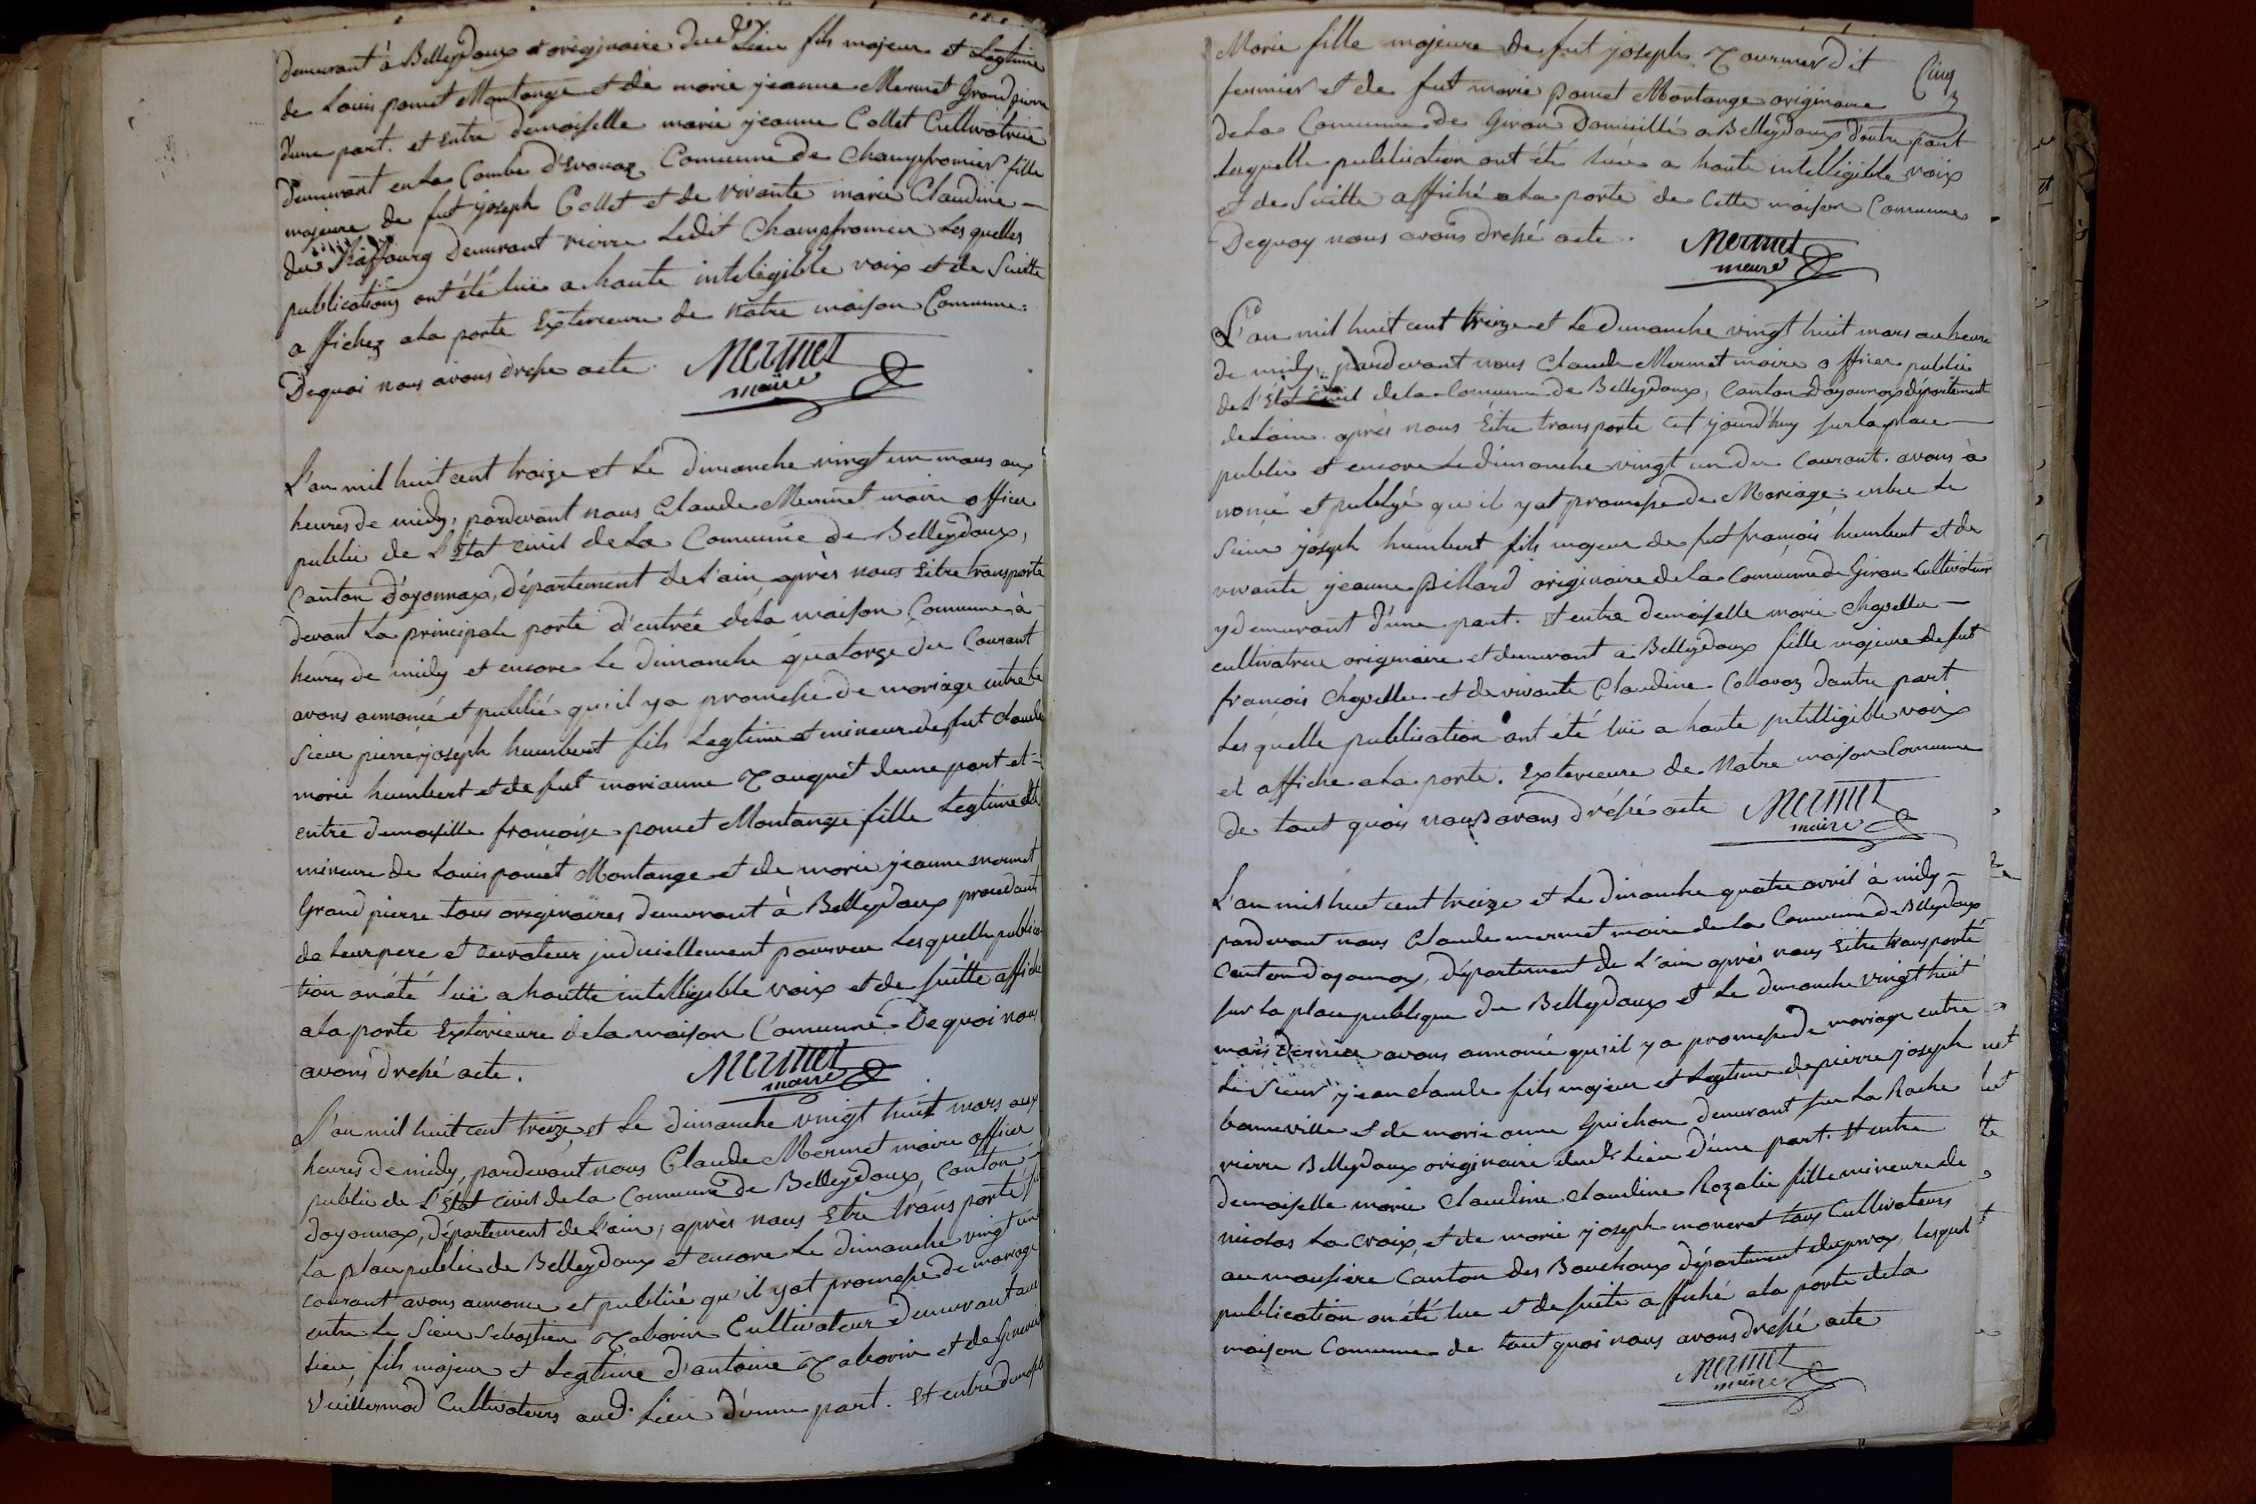 demeurant à Belleydoux et originaire dud. Lieu fils majeur et Legtime
de Louis poncet Montange et de marie jeanne Mermet Grand pierre
d'une part. et entre demoiselle marie jeanne Collet Cultivatrice
demeurant en La Combe d'Evouaz Commune de Champfromier fille
majeure de fut joseph Collet et de vivante marie Claudine
du Raffourg demeurant rierre Ledit Champfromier Les quelles
publications ont été luë a haute inteligible voix et de Suitte
affichez a La porte Exterieure de Notre maison Commune.
Dequoi nous avons dressé acte. Mermet
maire
L'an mil huit cent traize et Le dimanche vingt un mars aux
heures de midy, pardevant nous Claude Mermet maire officier
public de L'Etat civil de La Commune de Belleydoux,
Canton d'oyonnax, département de L'ain après nous Eitre transporte
devant La principale porte d'entrée de La maison Commune à
heures de midy et encore Le dimanche quatorze du Courant
avons annoncé et publié qu'il y a promesse de mariage entre Le
Sieur pierre joseph humbert fils Legtime et mineur de fut claude
marie humbert et de fut marianne Tauquet d'une part et
entre demoiselle francoise poncet Montange fille Legtime et
mineure de Louis poncet Montange et de marie jeanne mermet
Grand pierre tous originaires demeurant à Belleydoux procedant
de Leur pere et curateur judiciellement pourveu Les quelle publica
tion on été luë a hautte intelligible voix et de suitte affiche
a La porte Exterieure de La maison Commune. De quoi nous
avons dressé acte. Mermet
maire
L'an mil huit cent treize et Le dimanche vingt huit mars aux
heures de midy, pardevant nous Claude Mermet maire officier
public de L'Etat civil de La Commune de Belleydoux, Canton
doyonnax, département de L'ain, après nous Etre transporté sur
La place public de Belleydoux et encore Le dimanche vingt un
courant avons annonce et publié qu'il y at promesse de mariage
entre Le Sieur Sebastien Tabovin Cultivateur demeurant aud
Lieu, fils majeur et Legtime d'antoine Tabovin et de
Vuillermod Cultivateurs aud. Lieu d'une part. Et entre demoiselle
Marie fille majeure de fut joseph Tournier dit
fermier et de fut marie poncet Montange originaire
de La Commune de Giron Domicillié a Belleydoux d'autre part
Laquelle publication ont été luë a haute intelligible voix
et de Suitte affiché a La porte de Cette maison Commune
Dequoy nous avons dressé acte. Mermet
maire
Cinq
L'an mil huit cent treize et Le dimanche vingt huit mars au heure
de midy, pardevant nous Claude Mermet maire officier public
de L'Etat Civil de La Commune de Belleydoux, Canton Doyonnax département
de L'ain. après nous Eitre transporte cet jourd'huy sur La place
public et encore Le dimanche vingt un du Courant. avons à
noncé et publyé qu'il y at promesse de Mariage entre Le
Sieur joseph humbert fils majeur de fut françois humbert et de
vivante jeanne Billard originaire de La Commune de Giron Cultivateur
y demeurant d'une part. Et entre demoiselle marie Chapelle
cultivatrice originaire et demeurant a Belleydoux fille majeure de fut
françois Chapelle et de vivante Claudine Collavoz d'autre part
Les quelle publication ont été luë a haute intelligible voix
et affiche a La porte. Exterieure de Notre maison Commune
de tout quoi nous avons dréssé acte Mermet
maire
L'an mil huit cent treize et Le dimanche quatre avril à midy
pardevant nous Claude mermet maire de La Commune de Belleydoux
Canton doyonnax, département de L'ain après nous Eitre transporté
sur La place publique de Belleydoux et Le dimanche vingt huit
mars dernier avons annoncé qu'il y a promesse de mariage entre
Le Sieur jean claude fils majeur et Legtime de pierre joseph
bonneville et de marie anne Guichon demeurant sur La Roche
rierre Belleydoux originaire dud. Lieu d'une part. Et entre
demoiselle marie Claudine claudine Rozalie fille mineure de
nicolas La croix, et de marie joseph moneret tous Cultivateurs
au moussiere Canton des Bouchoux département du jurax, lesquel
publication on été lue et de suite affiché a La porte de La
maison Commune de tout quoi nous avons dressé acte
Mermet
maire